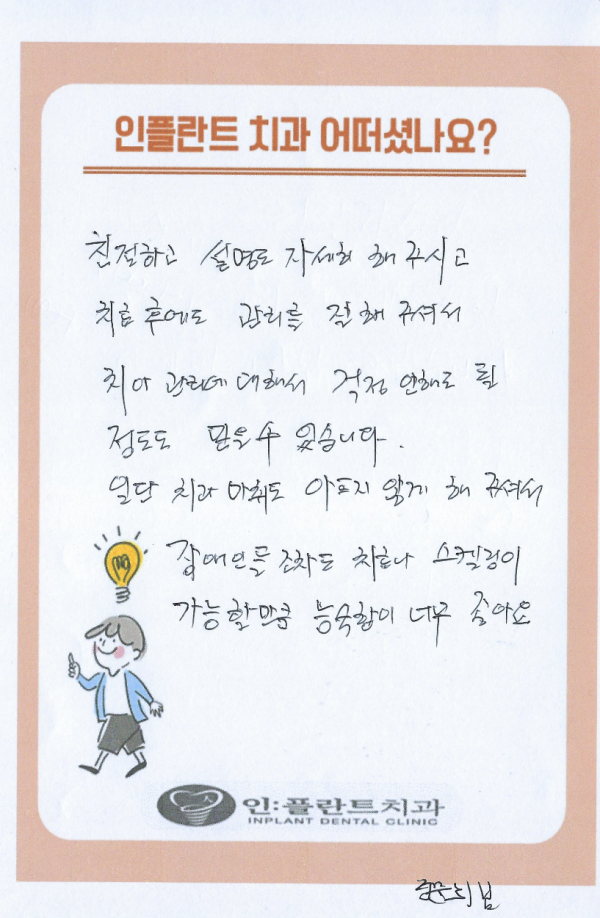 인플란트 치과 어떠셨나요?
친절하고 설명도 자세히 해 주시고
치료 후에도 관리를 잘 해 주셔서
치아 관리에 대해서 걱정 안해도 될
정도로 믿을 수 있습니다.
일단 치과 마취도 아프지 않게 해 주셔서
장애인들 조차도 치료나 스켈링이
가능할만큼 능숙함이 너무 좋아요
인:플란트치과
INPLANT DENTAL CLINIC
님